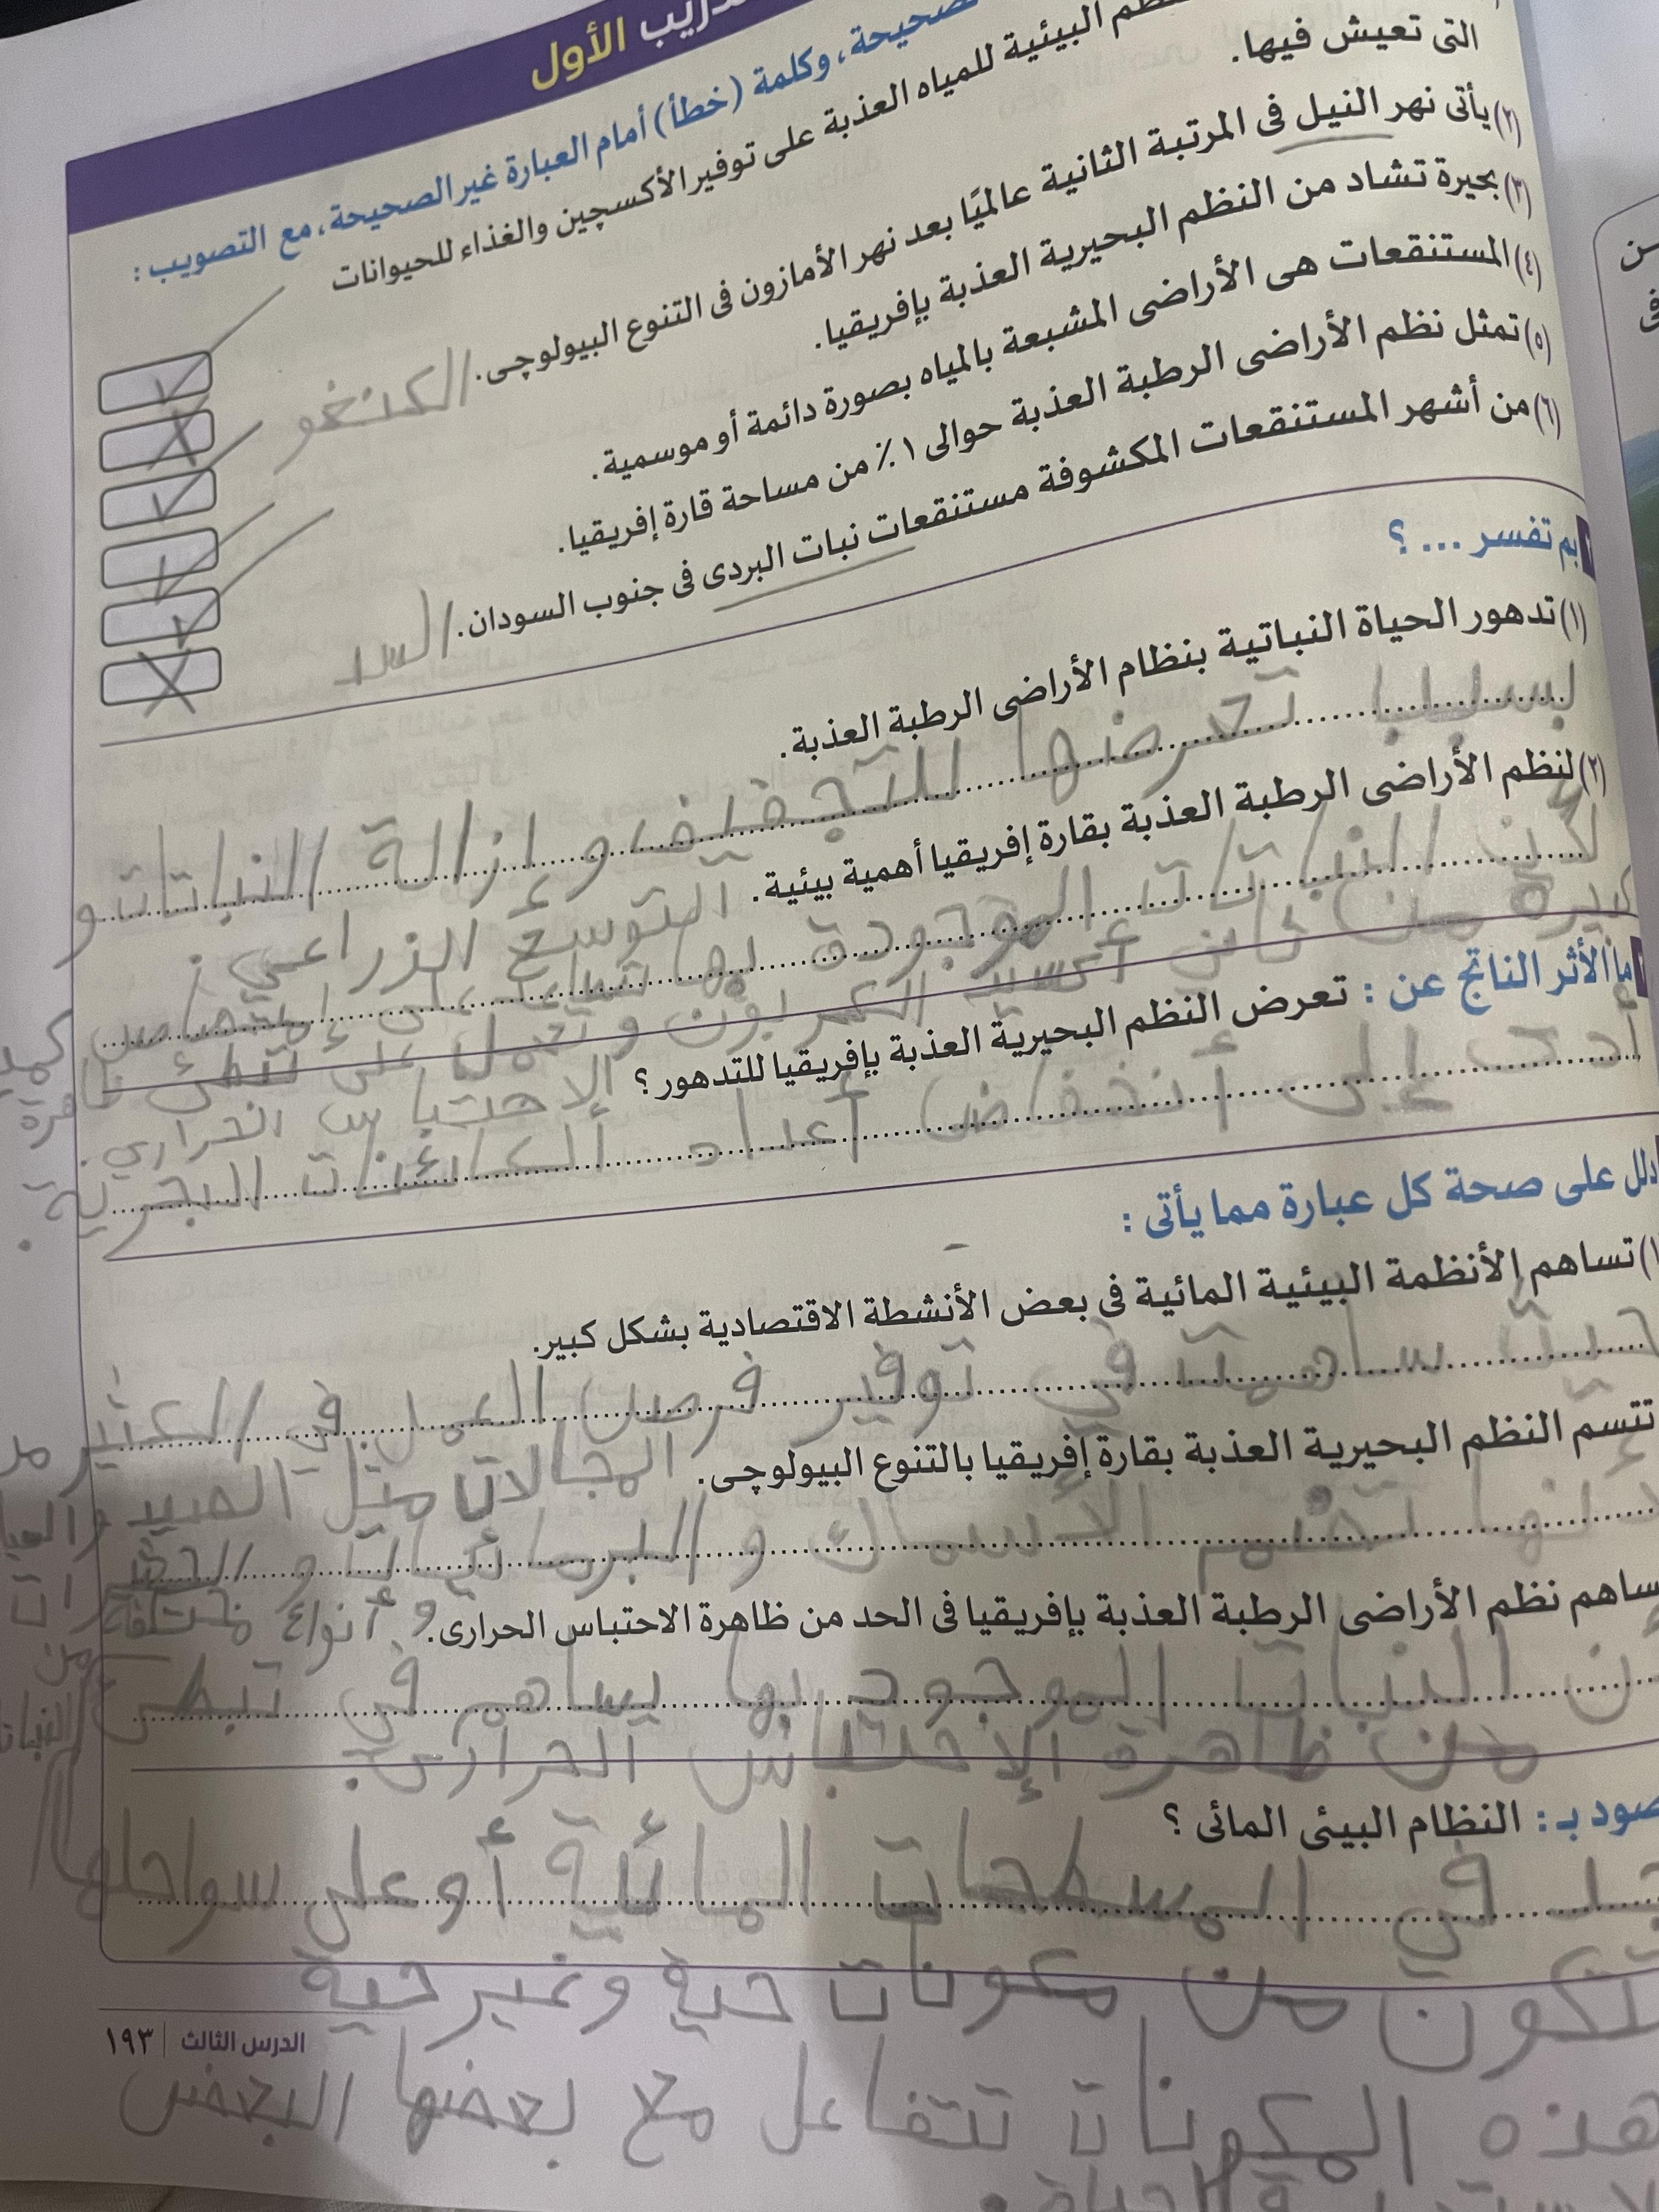 التدريب الأول
صحيحة، وكلمة (خطأ) أمام العبارة غير الصحيحة، مع التصويب :
النظم البيئية للمياه العذبة على توفير الأكسچين والغذاء للحيوانات
التى تعيش فيها. ✓
(٢) يأتى نهر النيل فى المرتبة الثانية عالميًا بعد نهر الأمازون فى التنوع البيولوچى. الكنغو ✗
(٣) بحيرة تشاد من النظم البحيرية العذبة بإفريقيا. ✓
(٤) المستنقعات هى الأراضى المشبعة بالمياه بصورة دائمة أو موسمية. ✓
(٥) تمثل نظم الأراضى الرطبة العذبة حوالى ١٪ من مساحة قارة إفريقيا. ✓
(٦) من أشهر المستنقعات المكشوفة مستنقعات نبات البردى فى جنوب السودان. السد ✗
بم تفسر ... ؟
(١) تدهور الحياة النباتية بنظام الأراضى الرطبة العذبة.
بسبب تعرضها للتجفيف و إزالة النباتات و
التوسع الزراعي.
(٢) لنظم الأراضى الرطبة العذبة بقارة إفريقيا أهمية بيئية.
لأن النباتات الموجودة بها تساعد على إمتصاص كمية
كبيرة من ثاني أكسيد الكربون و تعمل على تبطئ ظاهرة
الإحتباس الحراري.
ما الأثر الناتج عن : تعرض النظم البحيرية العذبة بإفريقيا للتدهور ؟
أدت إلى أنخفاض أعداد الكائنات البحرية.
دلل على صحة كل عبارة مما يأتى :
١) تساهم الأنظمة البيئية المائية فى بعض الأنشطة الاقتصادية بشكل كبير.
حيث ساهمت في توفير فرص العمل في الكثير من
المجالات مثل الصيد
تتسم النظم البحيرية العذبة بقارة إفريقيا بالتنوع البيولوچى.
لأنها تضم الأسماك و البرمائيات و
و أنواع مختلفة من النباتات
ساهم نظم الأراضى الرطبة العذبة بإفريقيا فى الحد من ظاهرة الاحتباس الحرارى.
أن النباتات الموجود بها يساهم في تبطئ
من ظاهرة الإحتباس الحراري.
صود بـ : النظام البيئى المائى ؟
في المسطحات المائية أو على سواحلها
تتكون من مكونات حية وغير حية
هذه المكونات تتفاعل مع بعضها البعض
الدرس الثالث | ١٩٣